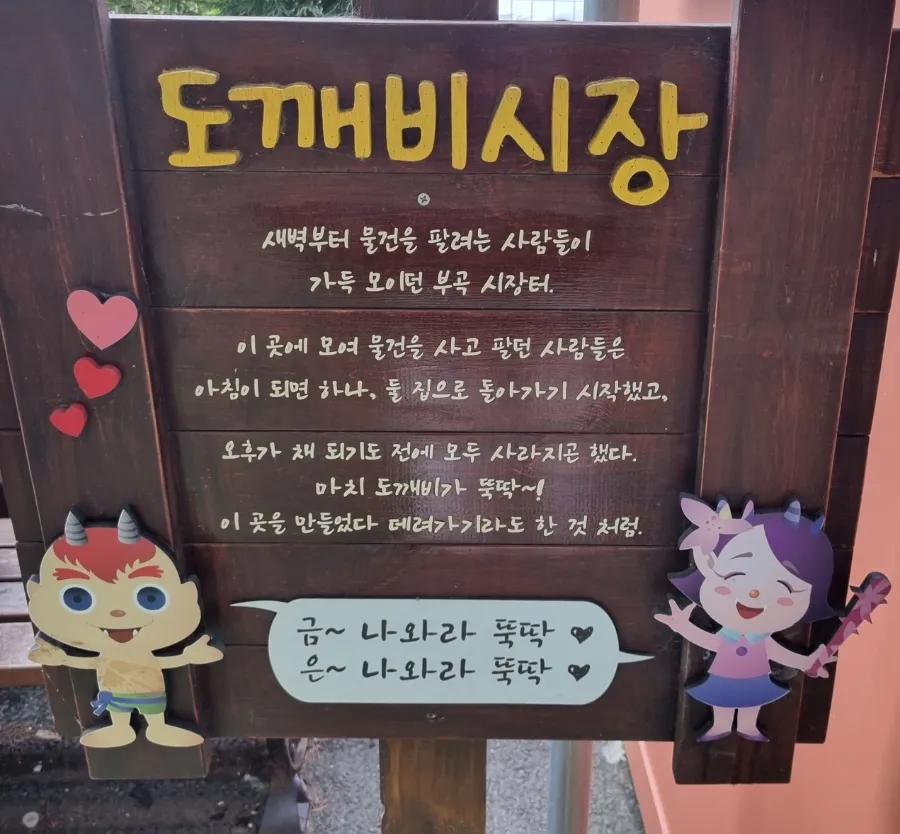 도깨비시장
새벽부터 물건을 팔려는 사람들이
가득 모이던 부곡 시장터.
이 곳에 모여 물건을 사고 팔던 사람들은
아침이 되면 하나, 둘 집으로 돌아가기 시작했고,
오후가 채 되기도 전에 모두 사라지곤 했다.
마치 도깨비가 뚝딱~!
이 곳을 만들었다 데려가기라도 한 것 처럼.
금~ 나와라 뚝딱 ♥
은~ 나와라 뚝딱 ♥